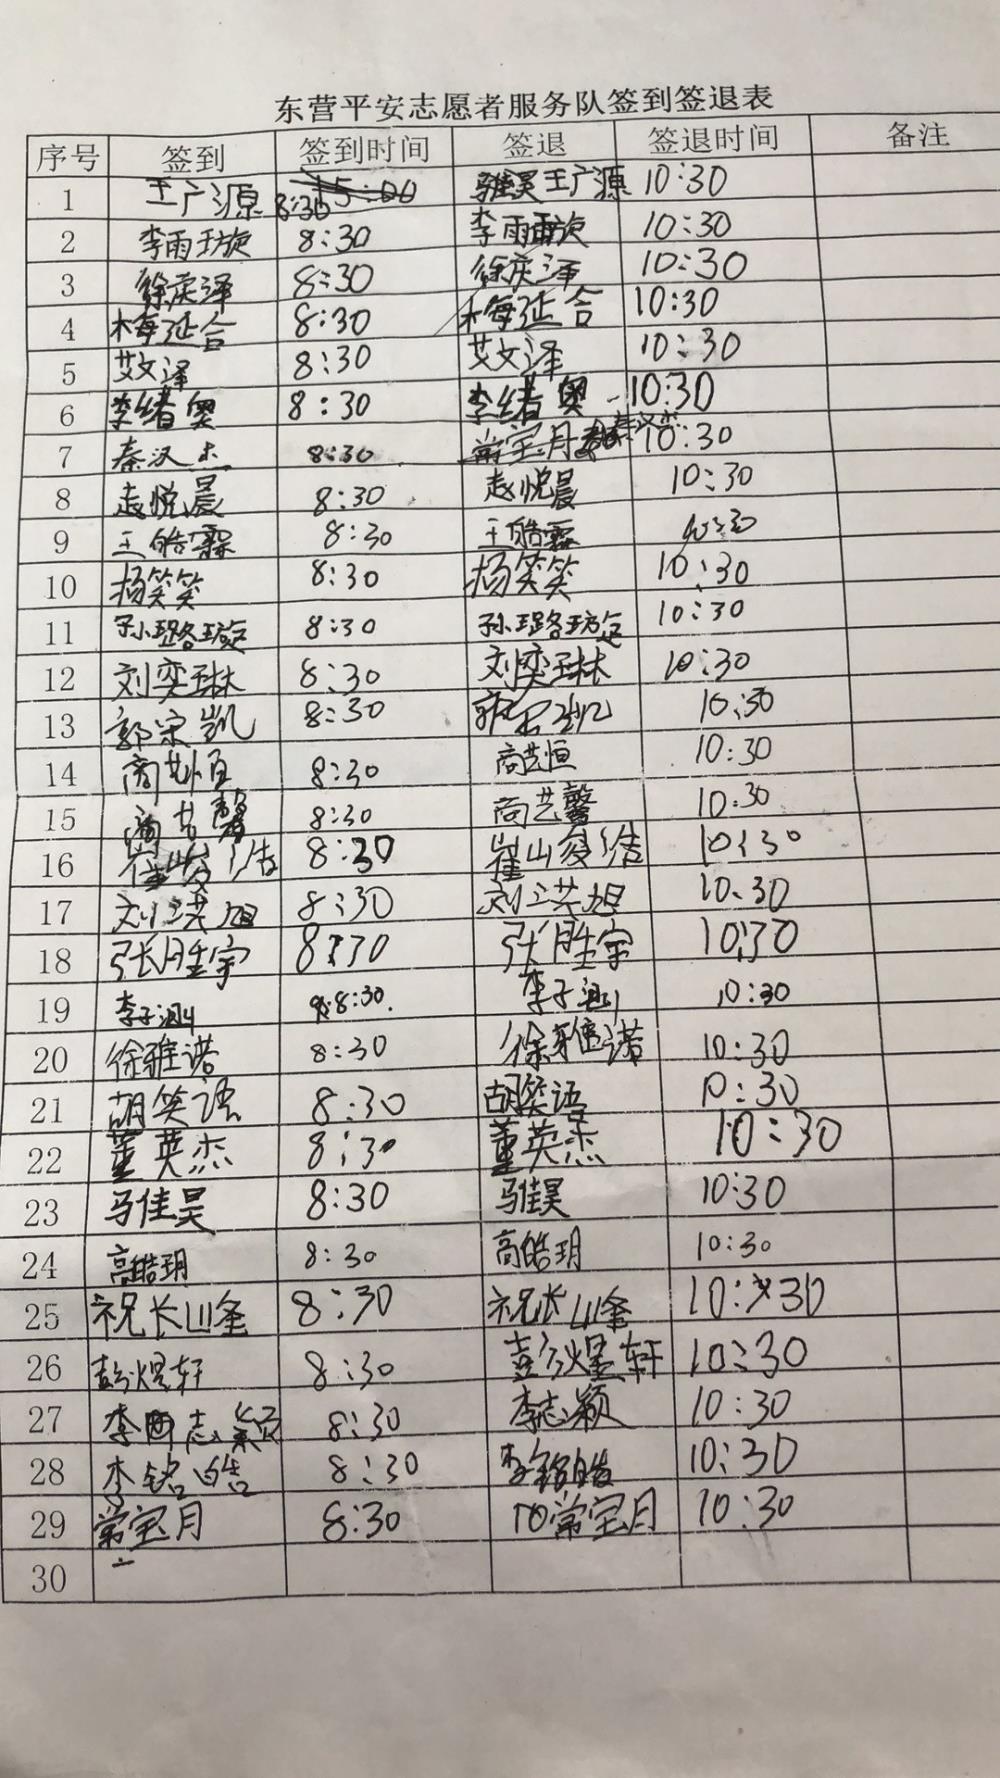 东营平安志愿者服务队签到签退表
序号 签到 签到时间 签退 签退时间 备注
1 王广源 8:30 马佳昊王广源 10:30
2 李雨璇 8:30 李雨璇 10:30
3 徐庆泽 8:30 徐庆泽 10:30
4 梅延合 8:30 梅延合 10:30
5 艾文泽 8:30 艾文泽 10:30
6 李绪奥 8:30 李绪奥 10:30
7 秦汉杰 8:30 常宝月 秦汉杰 10:30
8 赵悦晨 8:30 赵悦晨 10:30
9 王皓霖 8:30 王皓霖 10:30
10 杨笑笑 8:30 杨笑笑 10:30
11 孙璐璇 8:30 孙璐璇 10:30
12 刘奕琳 8:30 刘奕琳 10:30
13 郭宗凯 8:30 郭宗凯 10:30
14 商艺恒 8:30 商艺恒 10:30
15 商艺馨 8:30 商艺馨 10:30
16 崔峻洁 8:30 崔峻洁 10:30
17 刘洪旭 8:30 刘洪旭 10:30
18 张胜宇 8:30 张胜宇 10:30
19 李子测 8:30 李子测 10:30
20 徐雅诺 8:30 徐雅诺 10:30
21 胡笑语 8:30 胡笑语 10:30
22 董英杰 8:30 董英杰 10:30
23 马佳昊 8:30 马佳昊 10:30
24 高皓玥 8:30 高皓玥 10:30
25 祝长崟 8:30 祝长崟 10:30
26 彭煜轩 8:30 彭煜轩 10:30
27 李志颖 8:30 李志颖 10:30
28 李铭皓 8:30 李铭皓 10:30
29 常宝月 8:30 常宝月 10:30
30